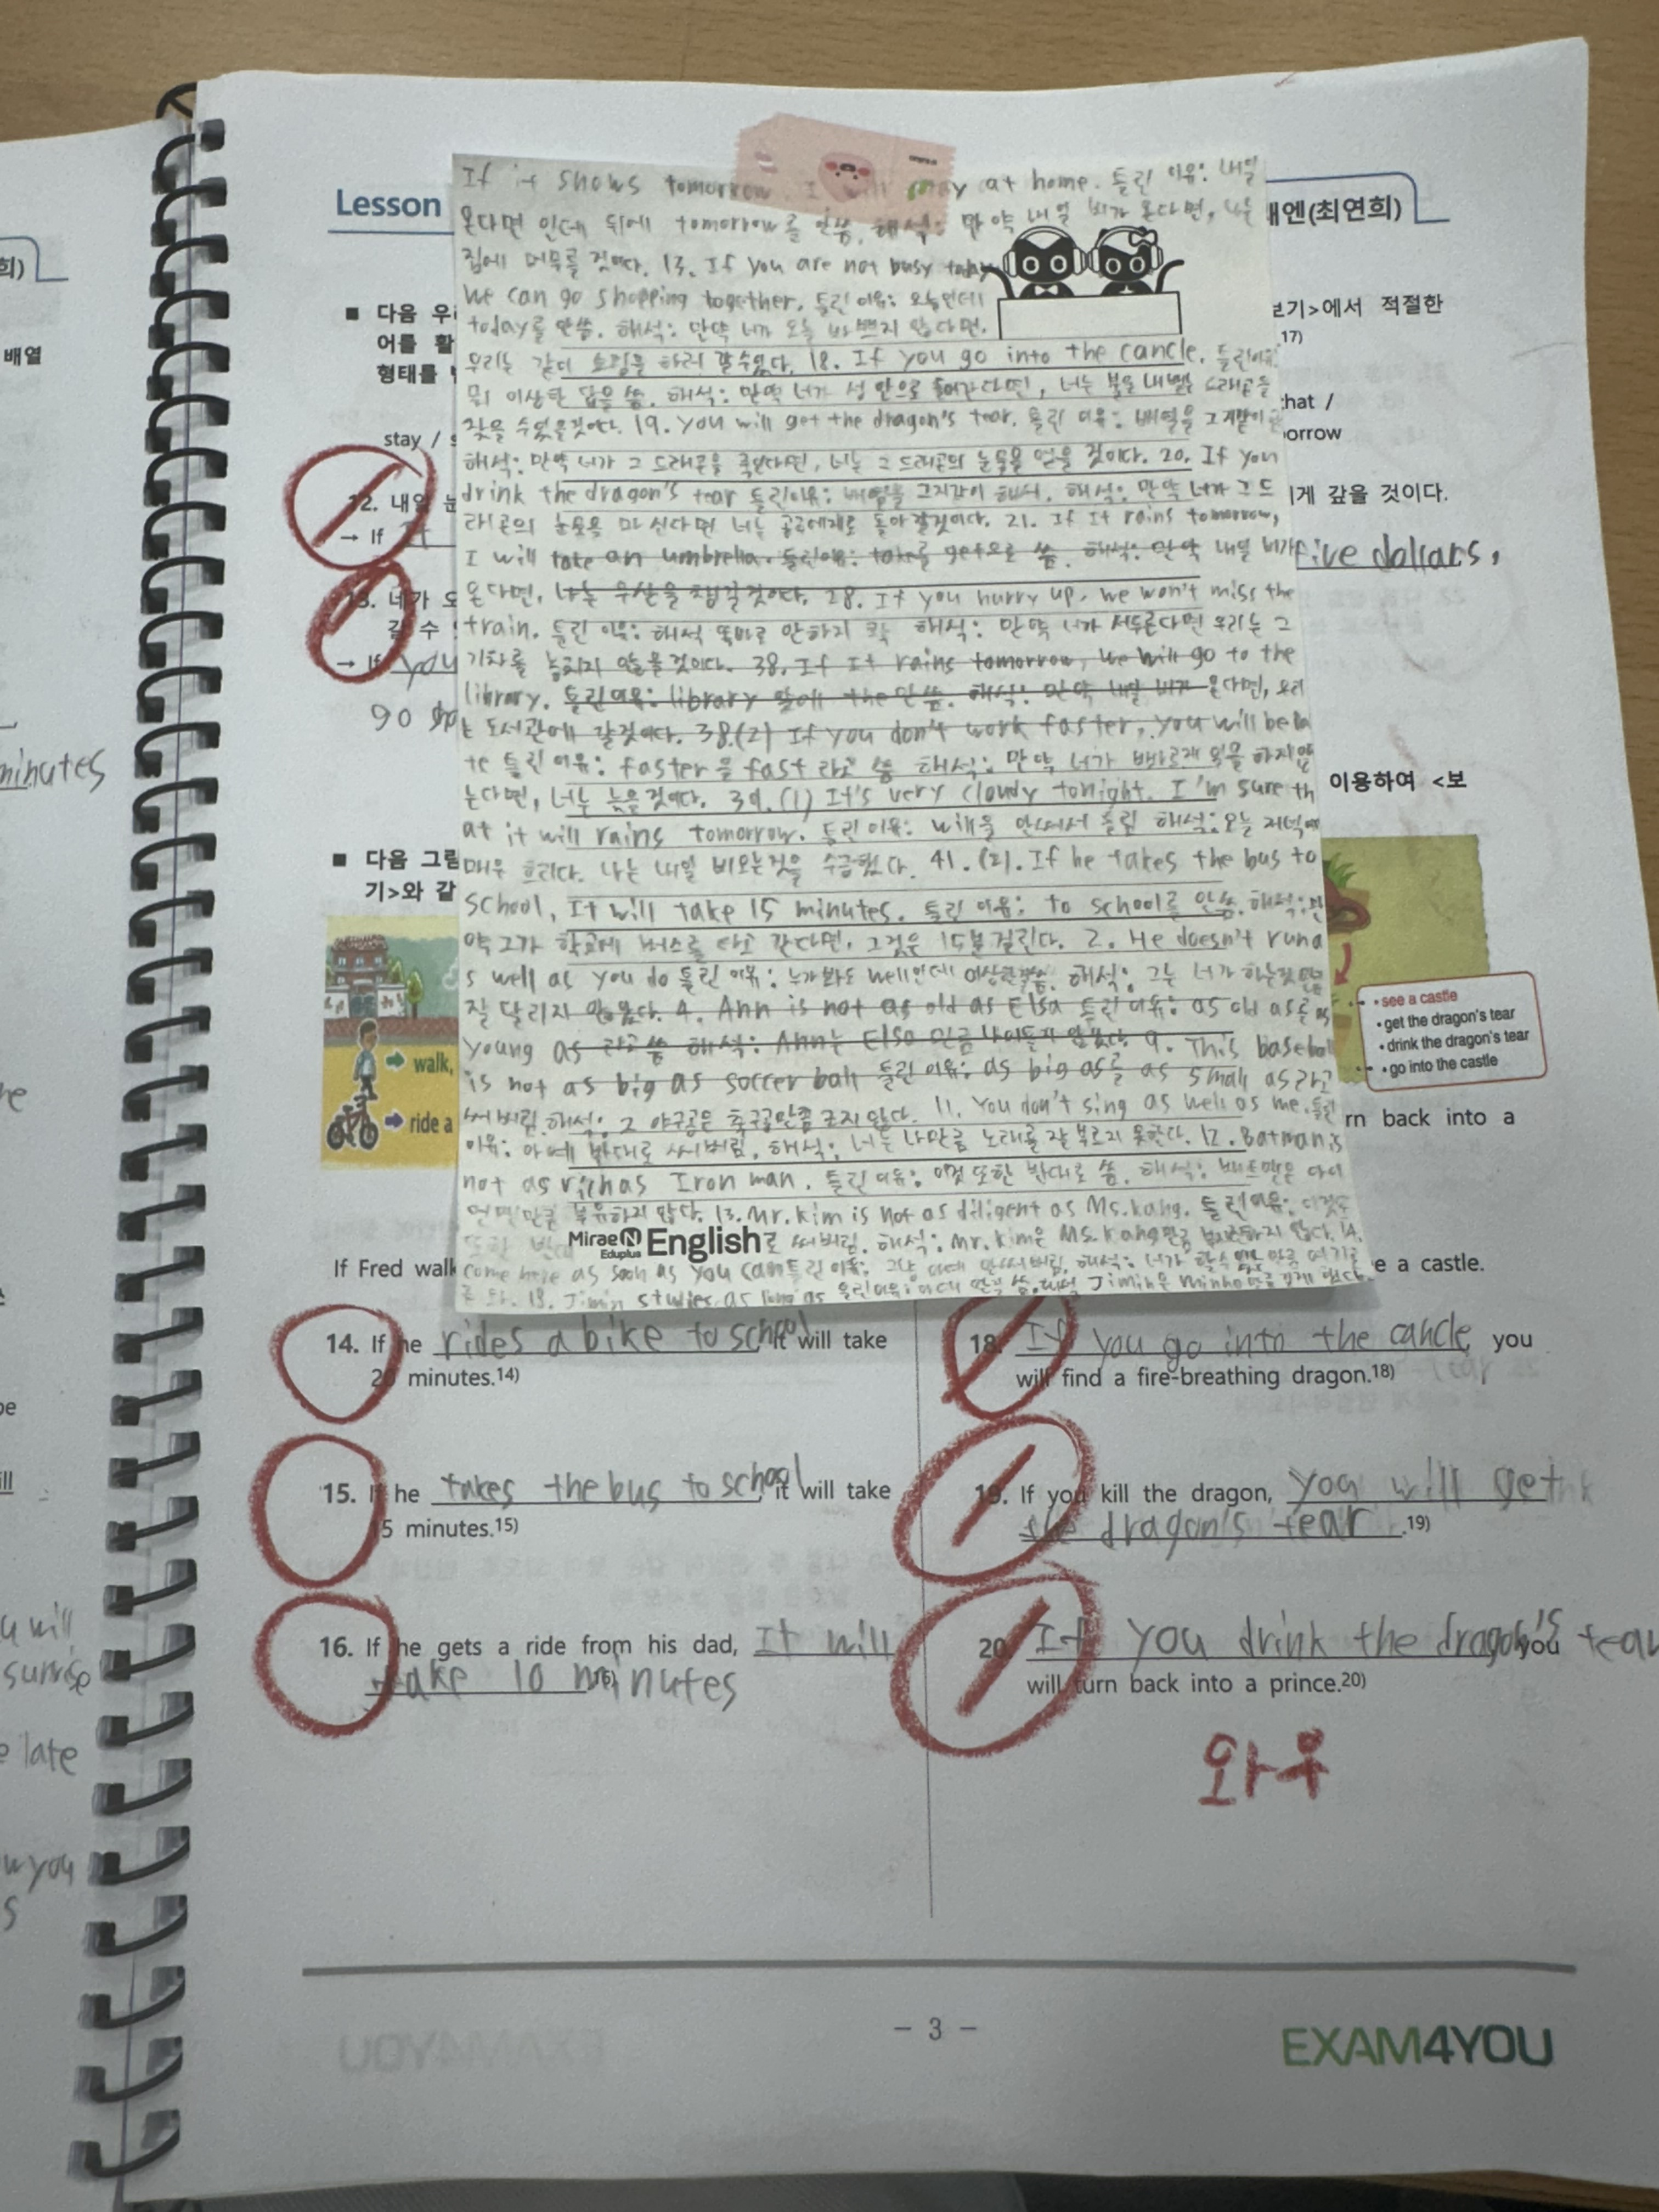 Lesson
배엔(최연희)
If it snows tomorrow, I will stay at home. 틀린 이유: 내일
온다면 인데 뒤에 tomorrow를 안씀. 해석: 만약 내일 비가 온다면, 나는
집에 머무를 것이다. 13. If you are not busy today
we can go shopping together. 틀린 이유: 오늘인데
today를 안씀. 해석: 만약 너가 오늘 바쁘지 않다면,
우리는 같이 쇼핑을 하러 갈수있다. 18. If you go into the cancle, 틀린이유:
뭐 이상한 답을 씀. 해석: 만약 너가 성 안으로 들어간다면, 너는 불을 내뿜는 드래곤을
찾을 수있을것이다. 19. you will get the dragon's tear. 틀린 이유: 배열을 그지같이
해석: 만약 너가 그 드래곤을 죽인다면, 너는 그 드래곤의 눈물을 얻을 것이다. 20. If you
drink the dragon's tear 틀린이유: 배열을 그지같이 해서. 해석: 만약 너가 그 드
래곤의 눈물을 마신다면 너는 돌아갈것이다. 21. If It rains tomorrow,
I will take an umbrella. 틀린이유: take를 get으로 씀. 해석: 만약 내일 비가
온다면, 나는 우산을 챙길것이다. 28. If you hurry up, we won't miss the
train. 틀린 이유: 해석 똑바로 안하지 해석: 만약 너가 서두른다면 우리는 그
기차를 놓치지 않을것이다. 38. If It rains tomorrow, we will go to the
library. 틀린이유: library 앞에 the 안씀. 해석: 만약 내일 비가 온다면, 우리
는 도서관에 갈것이다. 38.(2) If you don't work faster, you will be la
te 틀린 이유: faster을 fast 라고 씀 해석: 만약 너가 빠르게 일을 하지않
는다면, 너는 늦을것이다. 39. (1) It's very cloudy tonight. I'm sure th
at it will rains tomorrow. 틀린이유: will을 안써서 틀림 해석: 오늘 저녁에
매우 흐리다. 나는 내일 비오는것을 41. (2). If he takes the bus to
school, It will take 15 minutes. 틀린 이유: to school을 안씀. 해석: 만
약 그가 학교에 버스를 타고 간다면, 그것은 15분 걸린다. 2. He doesn't run a
s well as you do 틀린 이유: 누가봐도 well인데 이상한 씀. 해석: 그는 너가 하는것만큼
잘 달리지 않는다. 4. Ann is not as old as Elsa 틀린 이유: as old as를 as
young as 라고 씀 해석: Ann는 Elsa 만큼 나이들지 않았다. 9. This baseball
is not as big as soccer ball 틀린 이유: as big as를 as small as라고
써버림. 해석: 그 야구공은 축구공만큼 크지 않다. 11. you don't sing as well as me. 틀린
이유: 아예 반대로 써버림. 해석: 너는 나만큼 노래를 잘 부르지 못한다. 12. Batman is
not as rich as Iron man. 틀린 이유: 이것 또한 반대로 씀. 해석: 배트맨은 아이
언맨만큼 부유하지 않다. 13. Mr. Kim is not as diligent as Ms. Kang. 틀린이유: 이것도
또한 반대로 써버림. 해석: Mr. Kim은 Ms. Kang만큼 부지런하지 않다. 14.
come here as soon as you can 틀린 이유: 그냥 아예 안써버림. 해석: 너가 할수있는 만큼 여기로
18. Jimin studies as long as 틀린이유: 해석: Jimin은 Minho만큼
Mirae N
Eduplus
English
■ 다음 우리
어를 활
형태를
stay /
12. 내일 눈
→ If It
13. 네가 오
갈 수
→ If you
go
■ 다음 그림
기>와 같
walk,
ride a
If Fred walk
14. If he rides a bike to school it will take
20 minutes.14)
15. If he takes the bus to school, it will take
15 minutes.15)
16. If he gets a ride from his dad, It will
take 10 minutes
보기>에서 적절한
17)
that /
orrow
이게 갚을 것이다.
five dollars,
이용하여 <보
• see a castle
• get the dragon's tear
• drink the dragon's tear
• go into the castle
rn back into a
e a castle.
18. If you go into the cancle, you
will find a fire-breathing dragon.18)
19. If you kill the dragon, you will get
the dragon's tear.19)
20. If you drink the dragon's tear you
will turn back into a prince.20)
와우
- 3 -
EXAM4YOU
희)
배열
minutes
he
be
ill
u will
sunrise
e late
w you
s